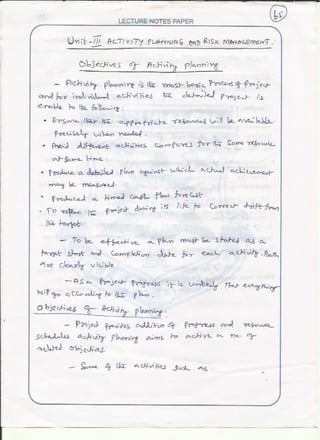 LECTURE NOTES PAPER
65
Unit-III ACTIVITY PLANNING AND RISK MANAGEMENT.
Objectives of Activity planning
- Activity planning is the most basic Process of project
and for individual activities the detailed Project is
enable to the following:
• Ensure that the appropriate resources will be available
precisely when needed.
• Avoid different activities compares for the same resource
at same time.
• Produce a detailed plan against which actual achievement
may be measured.
• Produced a timed cash flow forecast.
• To replan the project during its life to correct drift from
the target
- To be effective a plan must be stated as a
target start and completion date for each activity. Both
are clearly visible.
- As a project progress it is unlikely that everything
will go according to the plan.
Objectives of Activity planning.
- Project provides addition of progress and resource
schedules activity planning aims to achive a no. of
related objectives.
- Some of the activities such as.